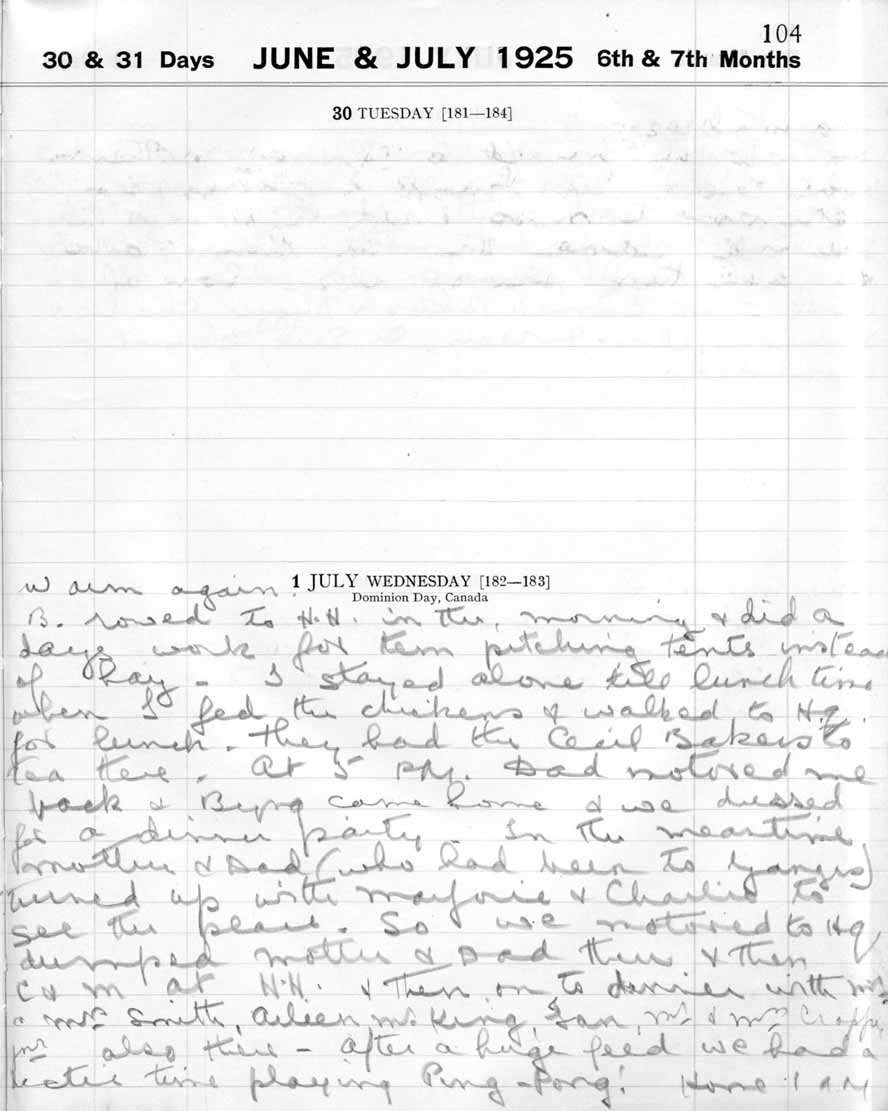 104
30 & 31 Days JUNE & JULY 1925 6th & 7th Months
30 TUESDAY [181—184]
1 JULY WEDNESDAY [182—183]
Dominion Day, Canada
warm again.
B. rowed to H.H. in the morning & did a
days work for them pitching tents instead
of hay - I stayed alone till lunch time
when I fed the chickens & walked to H.Q.
for lunch. They had the Cecil Bakers to
tea there. At 5 P.M. Dad motored me
back & Byng came home & we dressed
for a dinner party. In the meantime
mother & Dad (who had been to Ganges)
turned up with Marjorie & Charlie to
see the place. So we motored to Hq
dumped mother & Dad there & then
C & M at H.H. & then on to dinner with Mr
& Mrs Smith, Aileen McKing, Ian, Mr & Mrs
also there - After a huge feed we had a
hectic time playing Ping-Pong! Home 1 AM